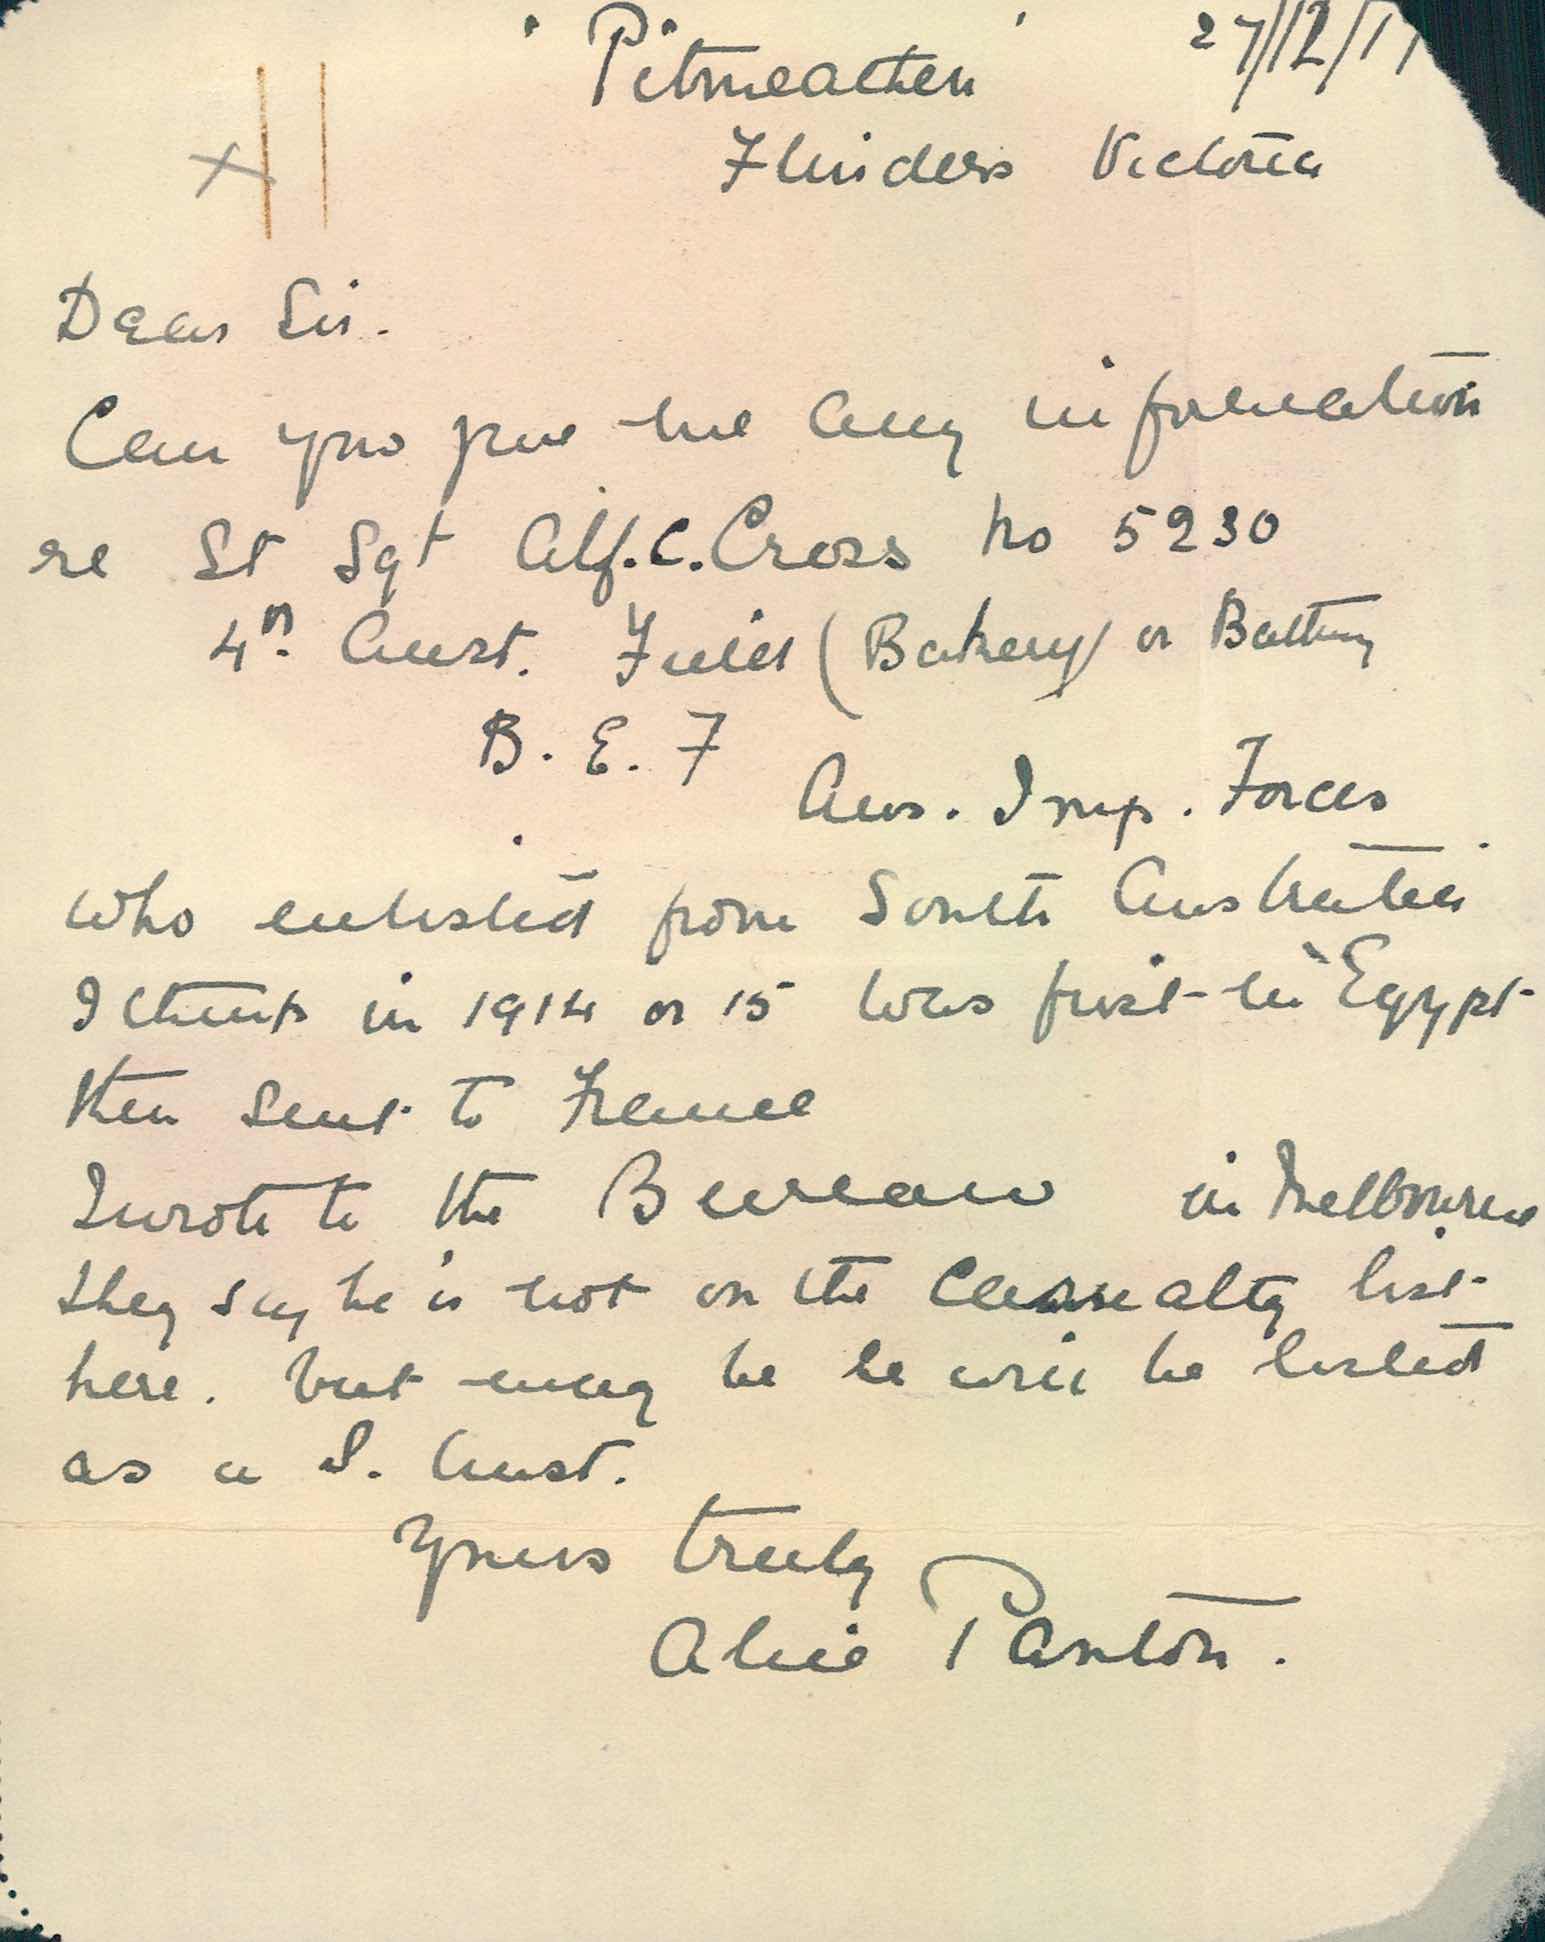 27/12/1
'Pitmeathen'
Flinders Victoria
Dear Sir.
Can you give me any information
re St Sgt Alf. C. Cross No 5230
4th Aust. Field (Bakery) or Battery
B. E. F
Aus. Imp. Forces
who enlisted from South Australia
I think in 1914 or 15 was first in Egypt
then sent to France
I wrote to the Bureau in Melbourne
they say he is not on the Casualty list
here. but may be he will be listed
as a S. Aust.
Yours truly
Alice Panton.